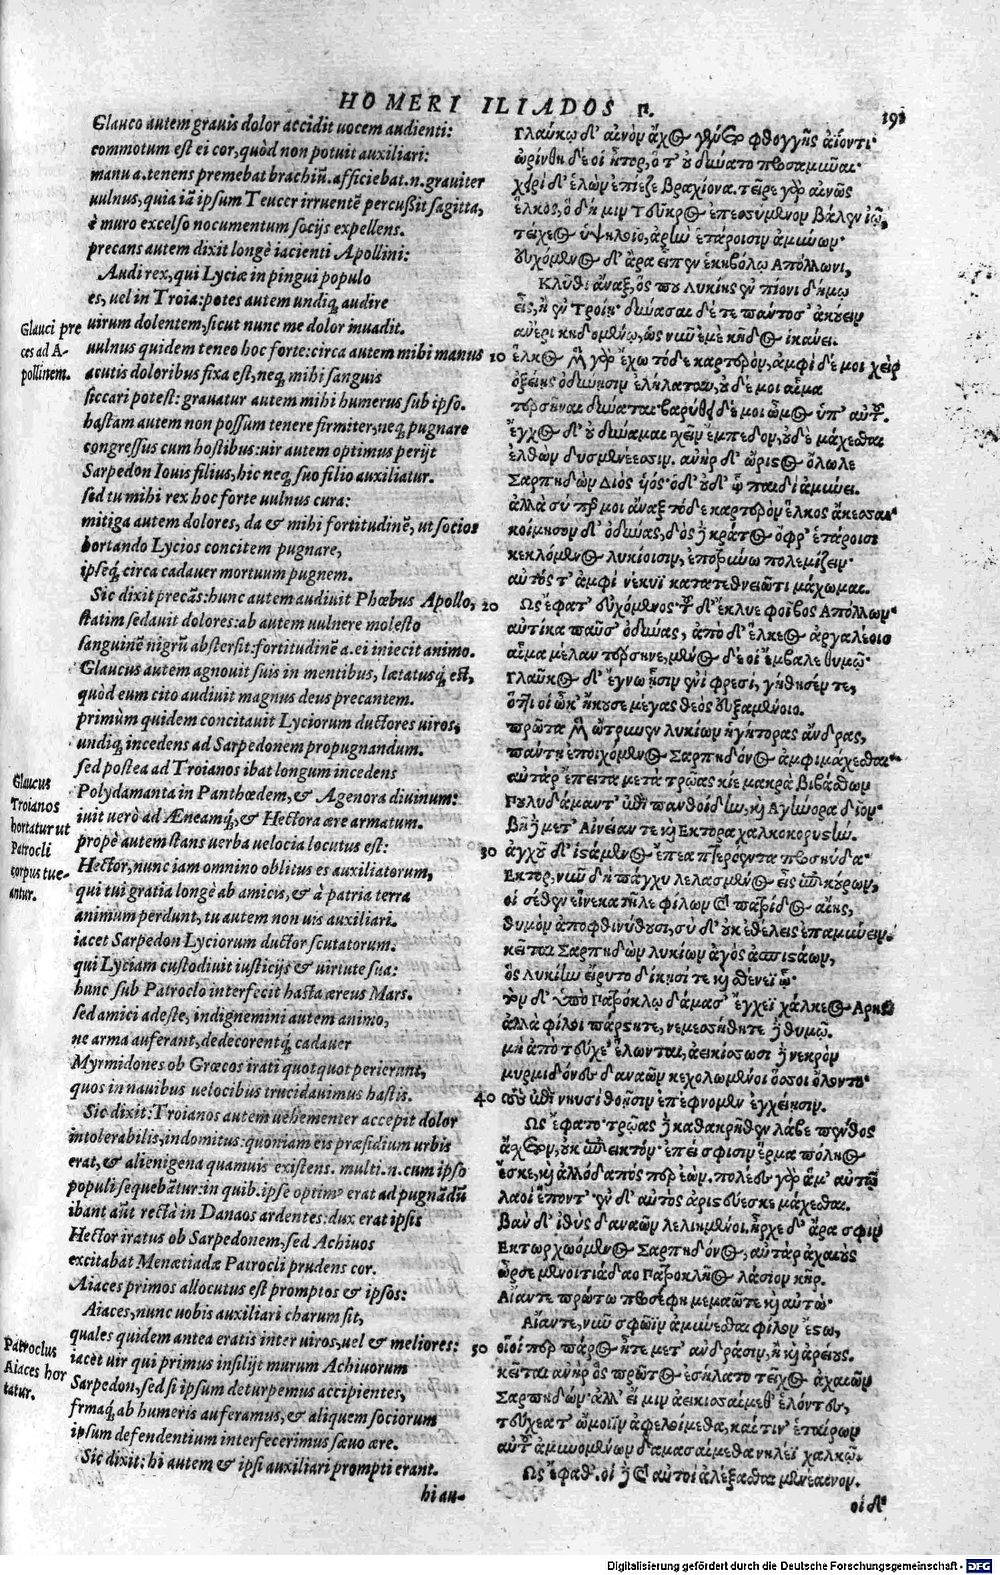 HOMERI ILIADOS Π. 191
Glauco autem gravis dolor accidit uocem audienti:
commotum est ei cor, quòd non potuit auxiliari:
manu a. tenens premebat brachiũ. afficiebat .n. grauiter
uulnus, quia iã ipsum Teucer irruentẽ percußit sagitta,
è muro excelso nocumentum socijs expellens.
precans autem dixit longè iacienti Apollini:
Audi rex, qui Lyciæ in pingui populo
es, uel in Troia: potes autem undiq; audire
uirum dolentem, sicut nunc me dolor inuadit.
uulnus quidem teneo hoc forte: circa autem mihi manus
acutis doloribus fixa est, neq; mihi sanguis
siccari potest: grauatur autem mihi humerus sub ipso.
hastam autem non possum tenere firmiter, neq; pugnare
congressus cum hostibus: uir autem optimus perijt
Sarpedon Iouis filius, hic neq; suo filio auxiliatur.
sed tu mihi rex hoc forte uulnus cura:
mitiga autem dolores, da & mihi fortitudinẽ, ut socios
hortando Lycios concitem pugnare,
ipseq; circa cadauer mortuum pugnem.
Sic dixit precãs: hunc autem audiuit Phœbus Apollo,
statim sedauit dolores: ab autem uulnere molesto
sanguinẽ nigrũ abstersit: fortitudinẽ a. ei iniecit animo.
Glaucus autem agnouit suis in mentibus, lætatusq; est,
quòd eum cito audiuit magnus deus precantem.
primùm quidem concitauit Lyciorum ductores uiros,
undiq; incedens ad Sarpedonem propugnandum.
sed postea ad Troianos ibat longum incedens
Polydamanta in Panthœdem, & Agenora diuinum:
iuit uerò ad Æneamq;, & Hectora ære armatum.
propè autem stans uerba uelocia locutus est:
Hector, nunc iam omnino oblitus es auxiliatorum,
qui tui gratia longè ab amicis, & à patria terra
animum perdunt, tu autem non uis auxiliari.
iacet Sarpedon Lyciorum ductor scutatorum.
qui Lyciam custodiuit iusticijs & uirtute sua:
hunc sub Patroclo interfecit hasta æreus Mars.
sed amici adeste, indignemini autem animo,
ne arma auferant, dedecorentq; cadauer
Myrmidones ob Græcos irati quotquot perierunt,
quos in nauibus uelocibus trucidauimus hastis.
Sic dixit: Troianos autem uehementer accepit dolor
intolerabilis, indomitus: quoniam eis præsidium urbis
erat, & alienigena quamuis existens. multi .n. cum ipso
populi sequebãtur: in quib. ipse optimꝰ erat ad pugnãdũ
ibant aũt rectà in Danaos ardentes: dux erat ipsis
Hector iratus ob Sarpedonem, sed Achiuos
excitabat Menœtiadæ Patrocli prudens cor.
Aiaces primos allocutus est promptos & ipsos:
Aiaces, nunc uobis auxiliari charum sit,
quales quidem antea eratis inter uiros, uel & meliores:
iacet uir qui primus insilijt murum Achiuorum
Sarpedon, sed si ipsum deturpemus accipientes,
armaq; ab humeris auferamus, & aliquem sociorum
ipsum defendentium interfecerimus sæuo ære.
Sic dixit: hi autem & ipsi auxiliari prompti erant.
hi au-
Glauci pre
ces ad A-
pollinem.
Glaucus
Troianos
hortatur ut
Patrocli
corpus tue-
antur.
Patroclus
Aiaces hor
tatur.
Γλαύκῳ δ' αἰνὸν ἄχος γένετο φθογγῆς ἀΐοντι·
ὠρίνθη δέ οἱ ἦτορ, ὅ τ' οὐ δύνατο προσαμῦναι·
χειρὶ δ' ἑλὼν ἐπίεζε βραχίονα. τεῖρε γὰρ αἰνῶς
ἕλκος, ὃ δή μιν Τεῦκρος ἐπεσσύμενον βάλεν ἰῷ,
τείχεος ὑψηλοῖο, ἀρὴν ἑτάροισιν ἀμύνων·
εὐχόμενος δ' ἄρα εἶπεν ἑκηβόλῳ Ἀπόλλωνι,
Κλῦθι ἄναξ, ὅς που Λυκίης ἐν πίονι δήμῳ
εἶς, ἢ ἐν Τροίῃ· δύνασαι δέ τε πάντοσ' ἀκούειν
ἀνέρι κηδομένῳ, ὡς νῦν ἐμὲ κῆδος ἱκάνει.
10 ἕλκος μὲν γὰρ ἔχω τόδε καρτερὸν, ἀμφὶ δέ μοι χεὶρ
ὀξείῃς ὀδύνῃσιν ἐλήλαται, οὐδέ μοι αἷμα
τερσῆναι δύναται· βαρύθει δέ μοι ὦμος ὑπ' αὐτοῦ.
ἔγχος δ' οὐ δύναμαι σχεῖν ἔμπεδον, οὐδὲ μάχεσθαι
ἐλθὼν δυσμενέεσσιν. ἀνὴρ δ' ὤριστος ὄλωλε
Σαρπηδὼν Διὸς υἱός· ὁ δ' οὐδ' ᾧ παιδὶ ἀμύνει.
ἀλλὰ σύ πέρ μοι ἄναξ τόδε καρτερὸν ἕλκος ἄκεσσαι·
κοίμησον δ' ὀδύνας, δὸς δὲ κράτος ὄφρ' ἑτάροισι
κεκλόμενος Λυκίοισιν, ἐποτρύνω πολεμίζειν·
αὐτός τ' ἀμφὶ νέκυϊ κατατεθνειῶτι μάχωμαι.
20 Ὣς ἔφατ' εὐχόμενος· τοῦ δ' ἔκλυε Φοῖβος Ἀπόλλων·
αὐτίκα παῦσ' ὀδύνας, ἀπὸ δ' ἕλκεος ἀργαλέοιο
αἷμα μέλαν τέρσηνε, μένος δέ οἱ ἔμβαλε θυμῷ·
Γλαῦκος δ' ἔγνω ᾗσιν ἐνὶ φρεσὶ, γήθησέν τε,
ὅττι οἱ ὦκ' ἤκουσε μέγας θεὸς εὐξαμένοιο.
πρῶτα μὲν ὤτρυνεν Λυκίων ἡγήτορας ἄνδρας,
πάντη ἐποιχόμενος Σαρπηδόνος ἀμφιμάχεσθαι·
αὐτὰρ ἔπειτα μετὰ Τρῶας κίε μακρὰ βιβάσθων
Πουλυδάμαντ' ἐπὶ Πανθοίδην, καὶ Ἀγήνορα δῖον·
βῆ δὲ μετ' Αἰνείαν τε καὶ Ἕκτορα χαλκοκορυστήν.
30 ἀγχοῦ δ' ἱστάμενος ἔπεα πτερόεντα προσηύδα·
Ἕκτορ, νῦν δὴ πάγχυ λελασμένος εἶς ἐπικούρων,
οἳ σέθεν εἵνεκα τῆλε φίλων καὶ πατρίδος αἴης,
θυμὸν ἀποφθινύθουσι, σὺ δ' οὐκ ἐθέλεις ἐπαμύνειν.
κεῖται Σαρπηδὼν Λυκίων ἀγὸς ἀσπιστάων,
ὃς Λυκίην εἴρυτο δίκῃσί τε καὶ σθένεϊ ᾧ·
τὸν δ' ὑπὸ Πατρόκλῳ δάμασ' ἔγχεϊ χάλκεος Ἄρης
ἀλλὰ φίλοι πάρστητε, νεμεσσήθητε δὲ θυμῷ.
μὴ ἀπὸ τεύχε' ἕλωνται, ἀεικίσσωσι δὲ νεκρὸν
μυρμιδόνες δαναῶν κεχολωμένοι ὅσσοι ὄλοντο·
40 τοὺς ἐπὶ νηυσὶ θοῇσιν ἐπέφνομεν ἐγχείῃσιν.
Ὣς ἔφατο· τρῶας δὲ κατακρῆθεν λάβε πένθος
ἄσχετον, οὐκ ἐπιεικτόν· ἐπεί σφισιν ἕρμα πόληος
ἔσκε, καὶ ἀλλόδαπός περ ἐών. πολέες γὰρ ἅμ' αὐτῷ
λαοὶ ἕποντ' ἐν δ' αὐτὸς ἀριστεύεσκε μάχεσθαι.
Βὰν δ' ἰθὺς δαναῶν λελιημένοι, ἦρχε δ' ἄρα σφιν
Ἕκτωρ χωόμενος Σαρπηδόνος, αὐτὰρ ἀχαιοὺς
ὦρσε μενοιτιάδαο Πατροκλῆος λάσιον κῆρ.
Αἴαντε πρώτω προσέφη μεμαῶτε καὶ αὐτώ·
Αἴαντε, νῦν σφῶϊν ἀμύνεσθαι φίλον ἔστω,
50 οἷοί περ πάρος ἦτε μετ' ἀνδράσιν, ἢ καὶ ἀρείους.
κεῖται ἀνὴρ ὃς πρῶτος ἐσήλατο τεῖχος ἀχαιῶν
Σαρπηδών· ἀλλ' εἴ μιν ἀεικισσαίμεθ' ἑλόντες,
τεύχεά τ' ὤμοιϊν ἀφελοίμεθα, καί τιν' ἑταίρων
αὐτοῦ ἀμυνομένων δαμασαίμεθα νηλέϊ χαλκῷ.
Ὣς ἔφαθ'. οἱ δὲ καὶ αὐτοὶ ἀλέξασθαι μενέαινον.
οἱ δ'
Digitalisierung gefördert durch die Deutsche Forschungsgemeinschaft - DFG